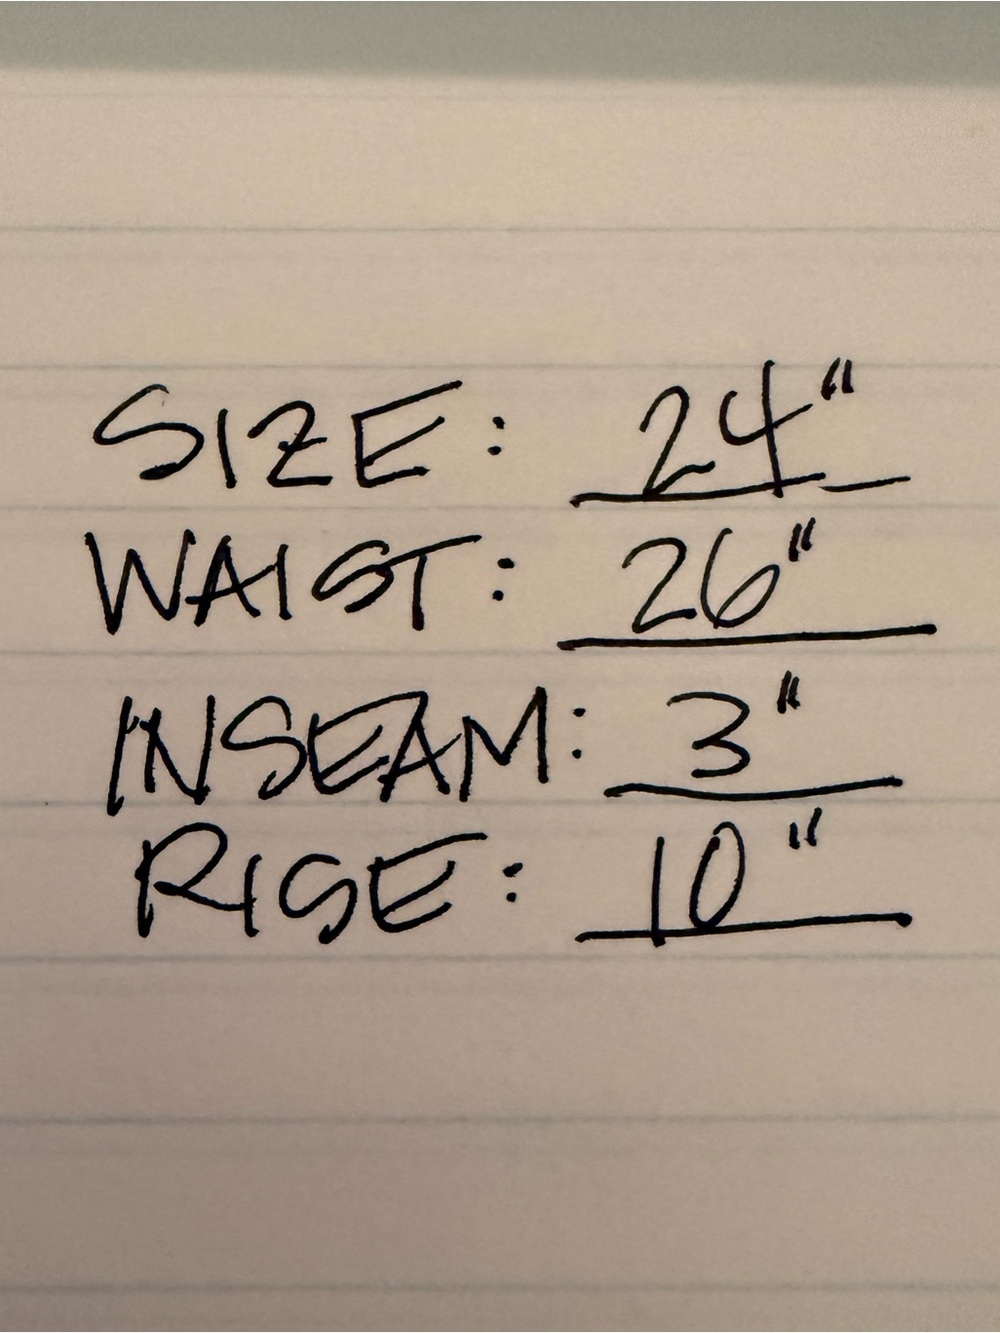 SIZE: 24"
WAIST: 26"
INSEAM: 3"
RISE: 10"